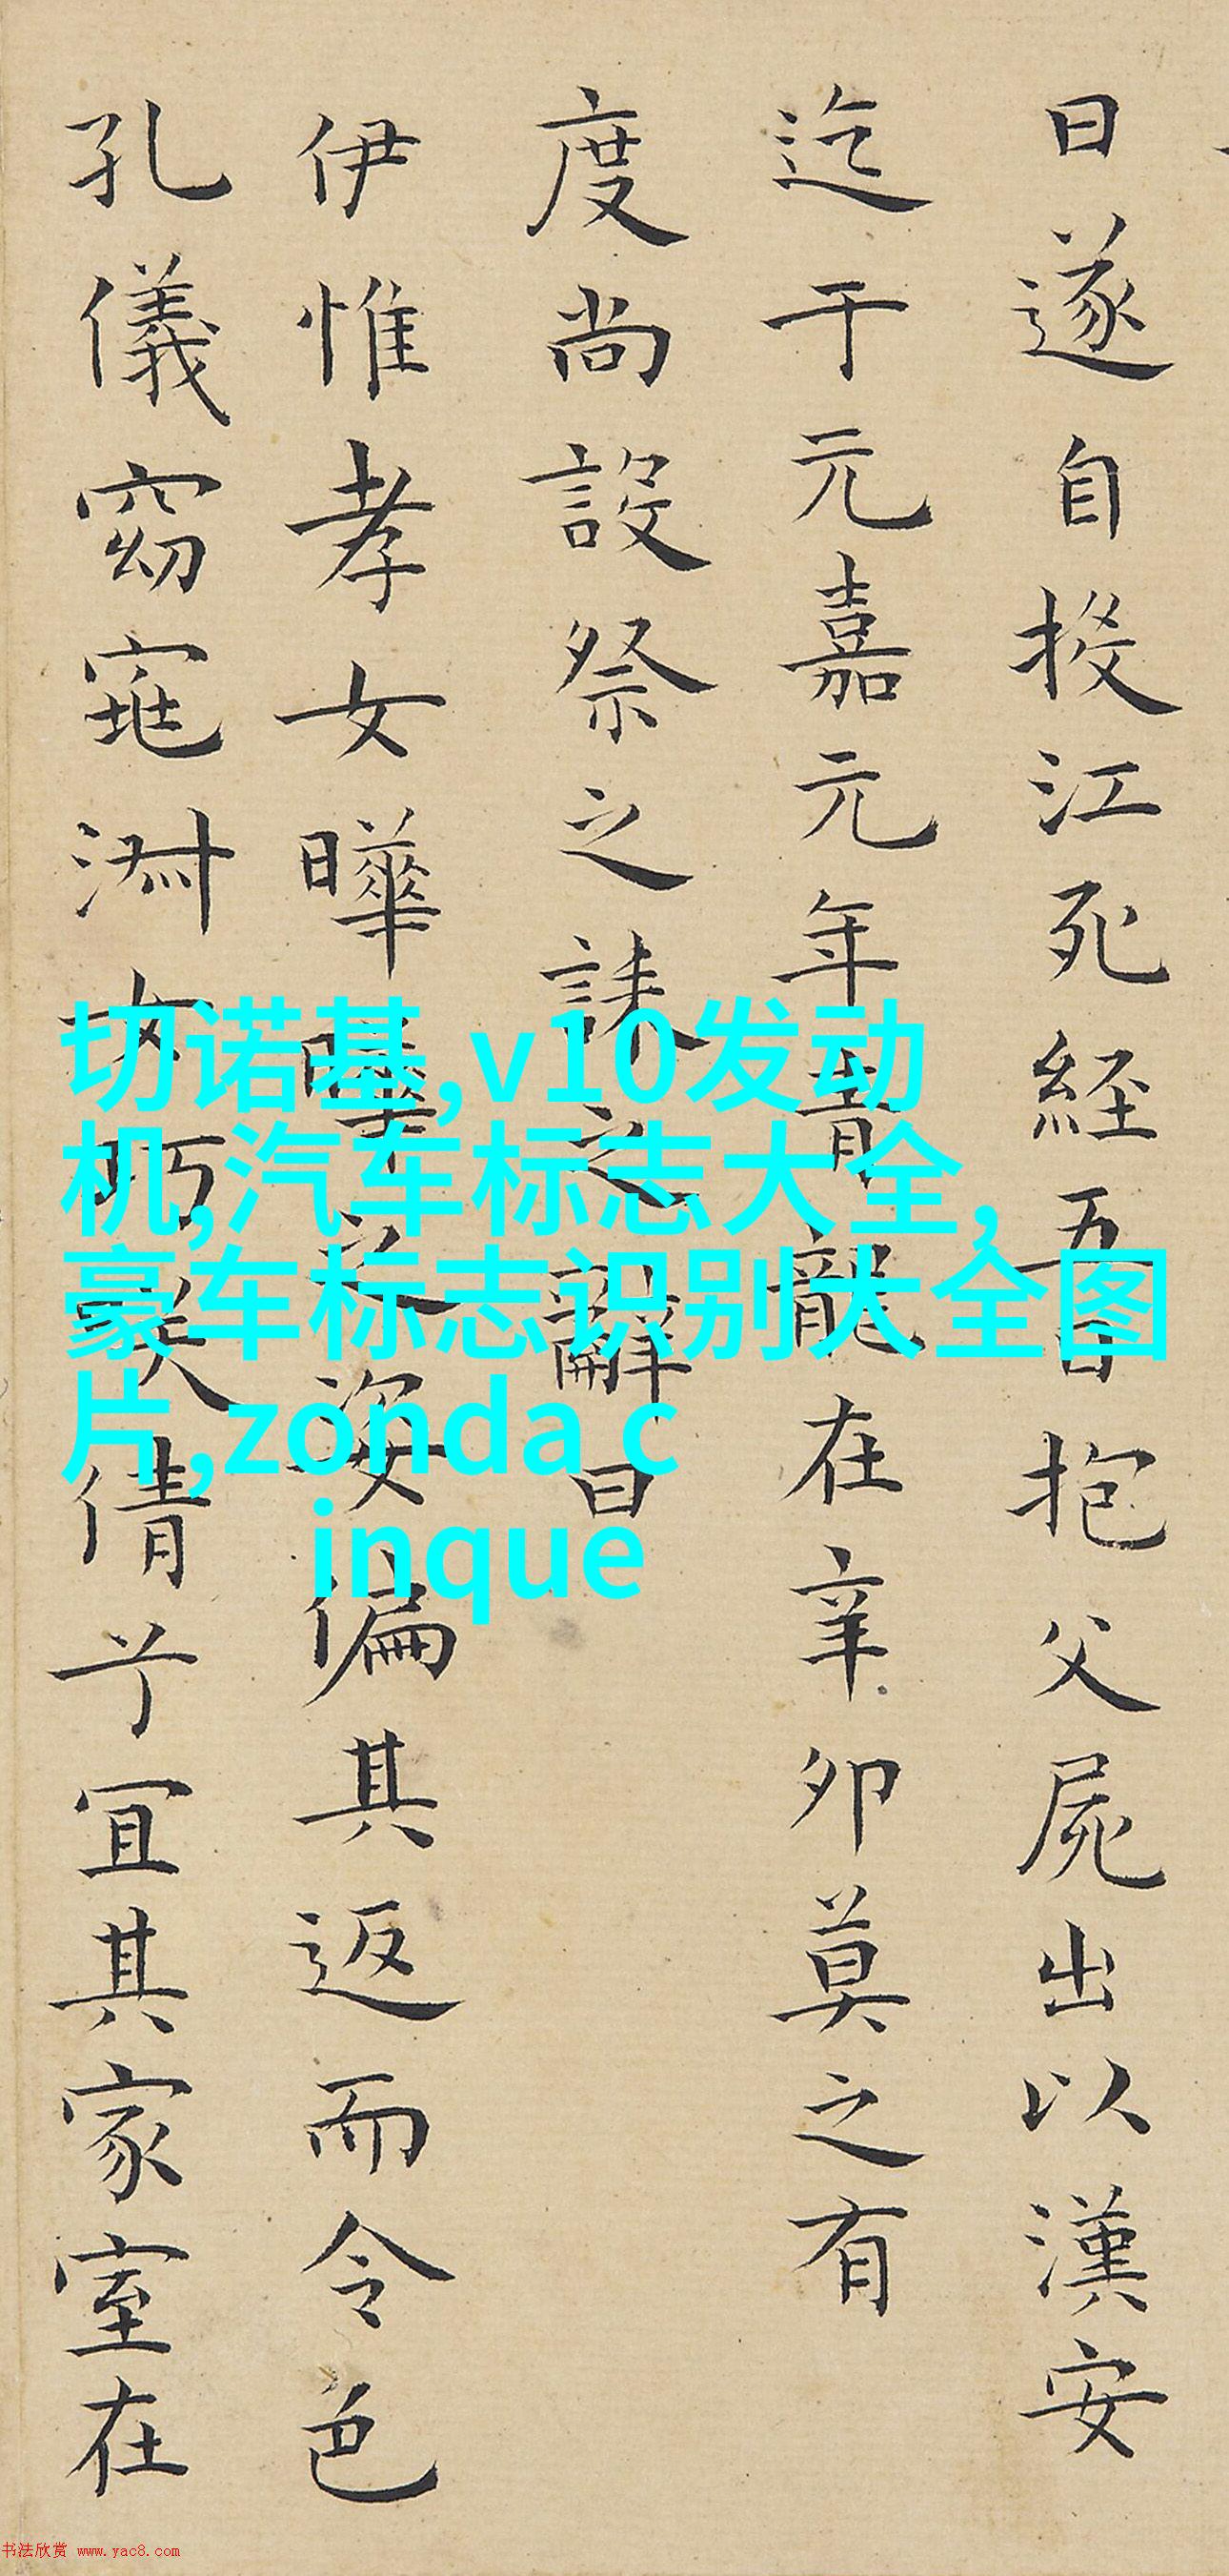 日遂自投江死經五日抱父屍出以漢安
迄于元嘉元年青龍在辛卯莫之有
度尚設祭之誄之辭曰
伊惟孝女曄曄之姿偏其返而令色
孔儀窈窕淑女巧笑倩兮宜其家室在
切诺基,v10发动
机,汽车标志大全,
豪车标志识别大全图
片,zonda c
inque
书法欣赏 www.yac8.com